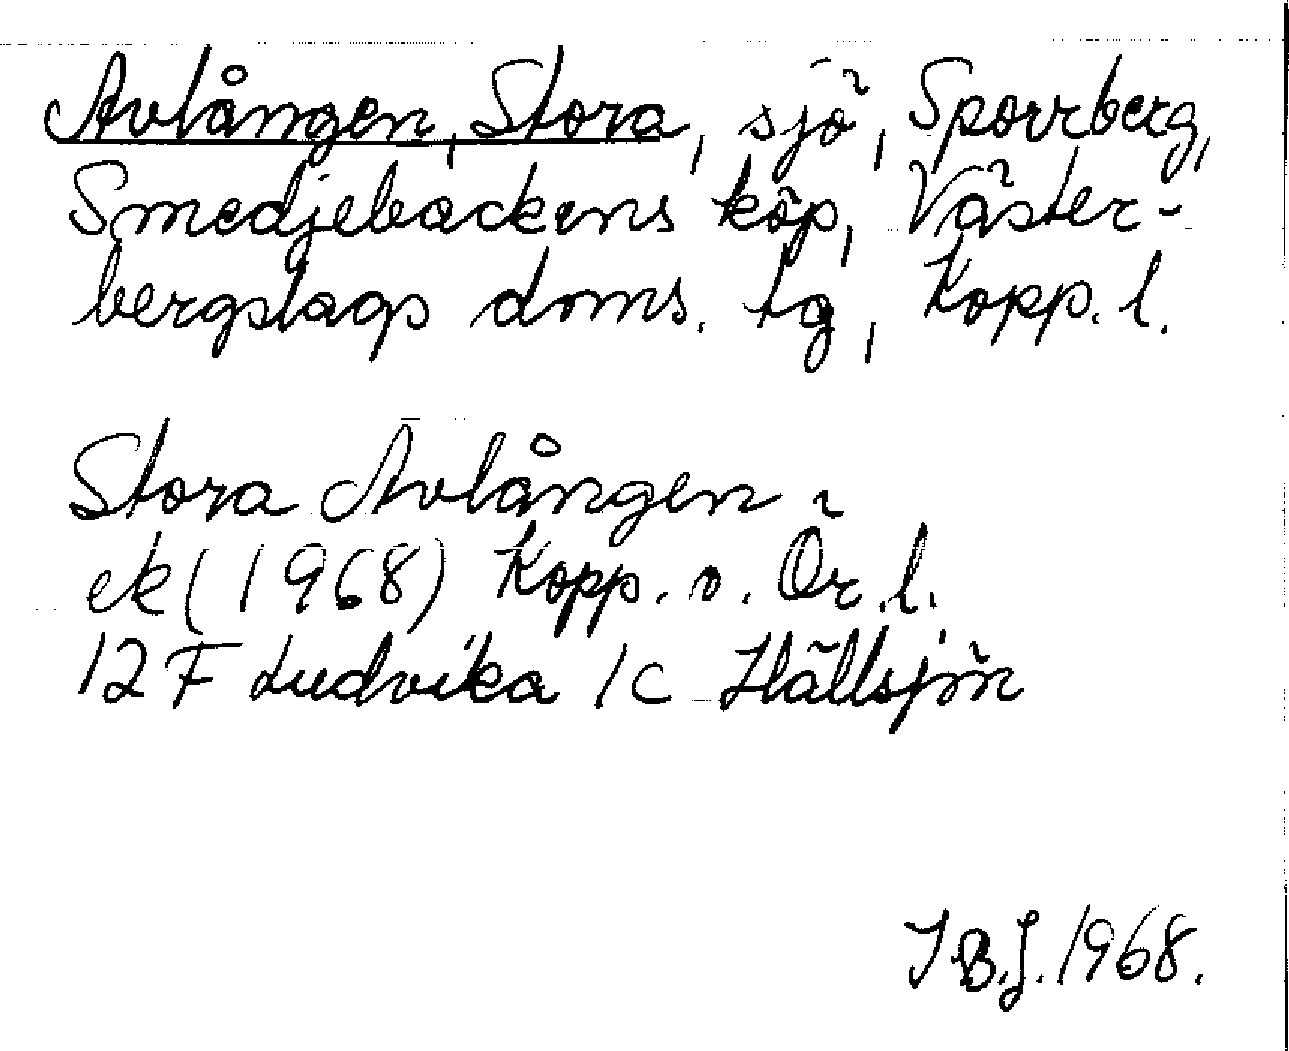 Avlången, Stora, sjö, Sporrberg,
Smedjebackens köp, Väster-
bergslags doms. tg, Kopp. l.
Stora Avlången
ek (1968) Kopp. o. Ör. l.
12 F Ludvika 1c Hällsjön
I B.J. 1968.